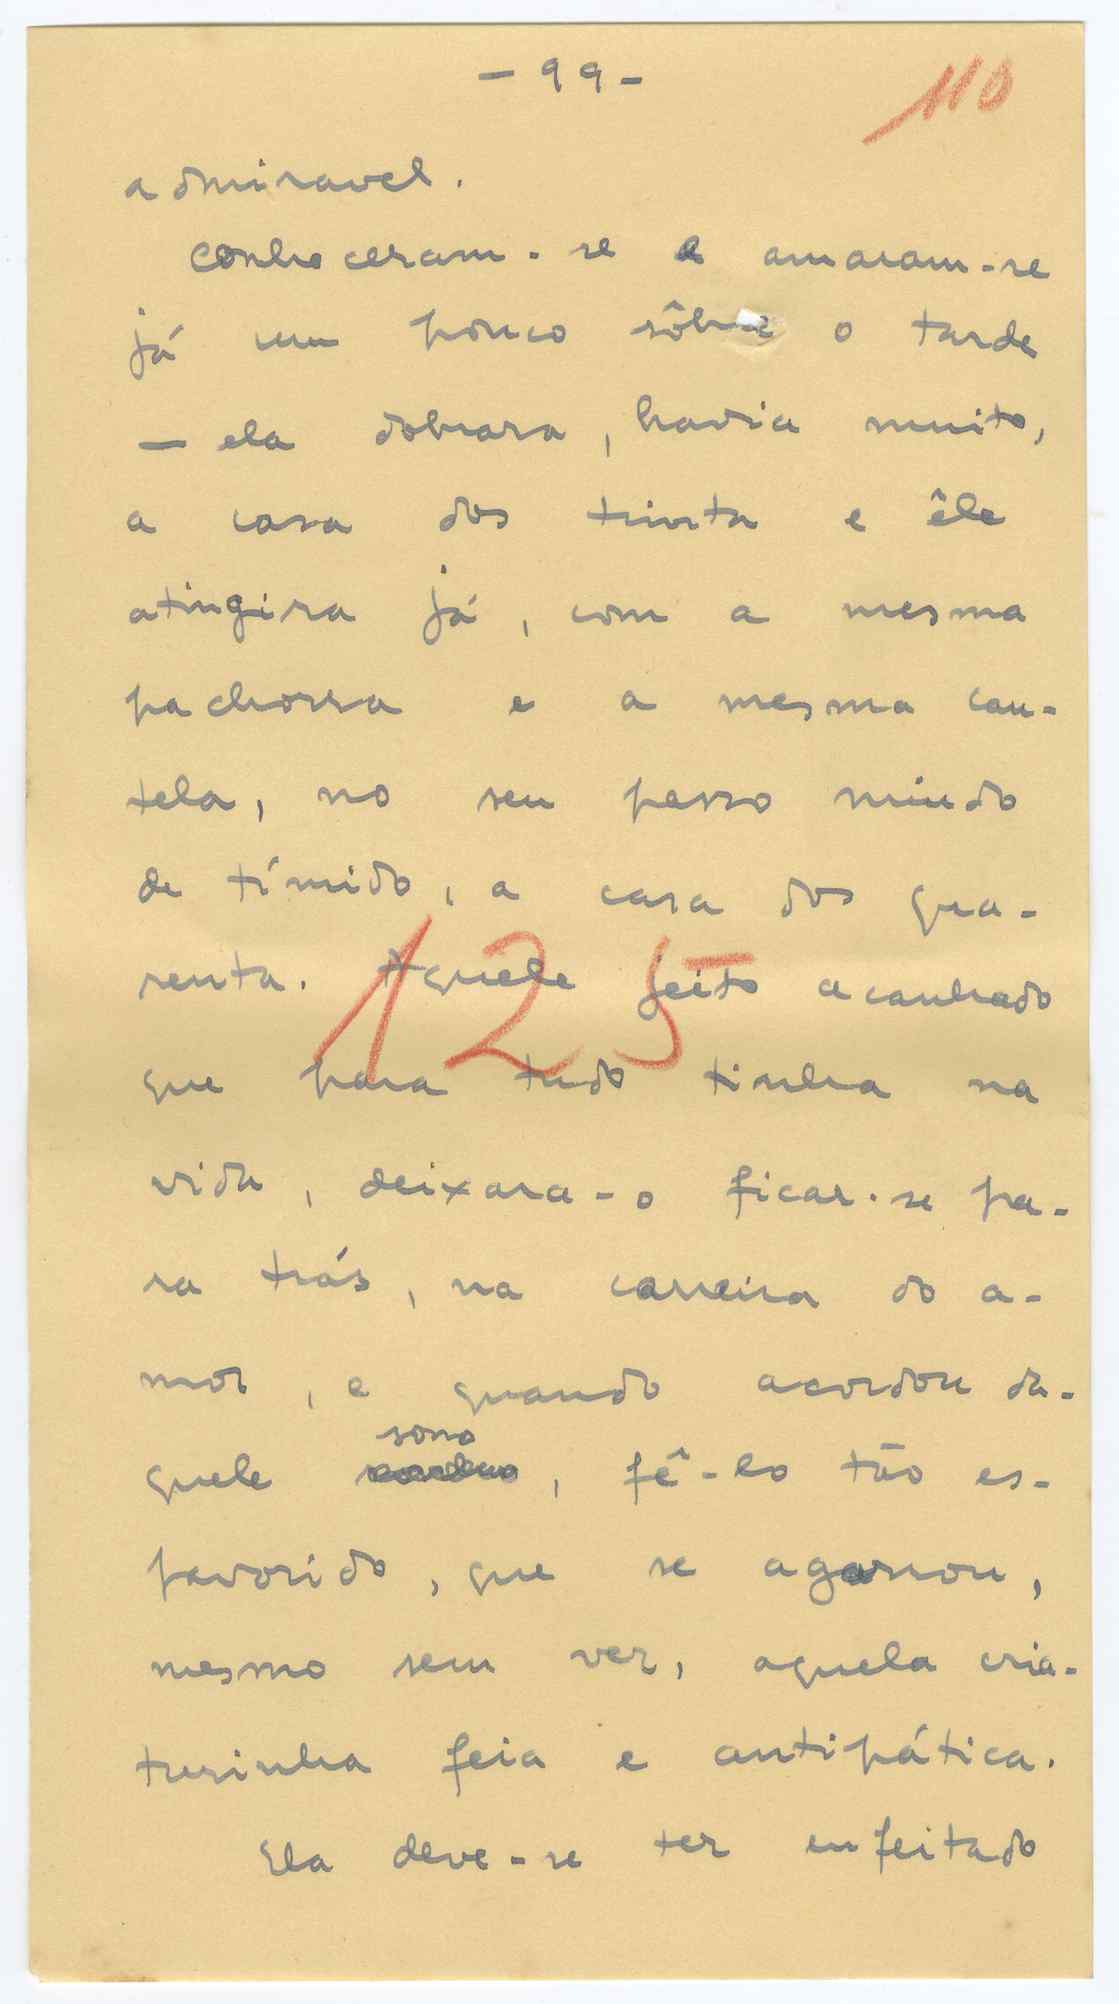 - 99 -
110
admiravel.
Conheceram-se e amaram-se
já um pouco sôbre o tarde
— ela dobrara, havia muito,
a casa dos trinta e êle
atingira já, com a mesma
pachorra e a mesma cau-
tela, no seu passo miudo
de tímido, a casa dos qua-
renta. Aquele jeito acanhado
125
que para tudo tinha na
vida, deixara-o ficar-se pa-
ra trás, na carreira do a-
mor, e quando acordou da-
sono
quele, fê-lo tão es-
pavorido, que se agarrou,
mesmo sem ver, aquela cria-
turinha feia e antipática.
Ela deve-se ter enfeitado